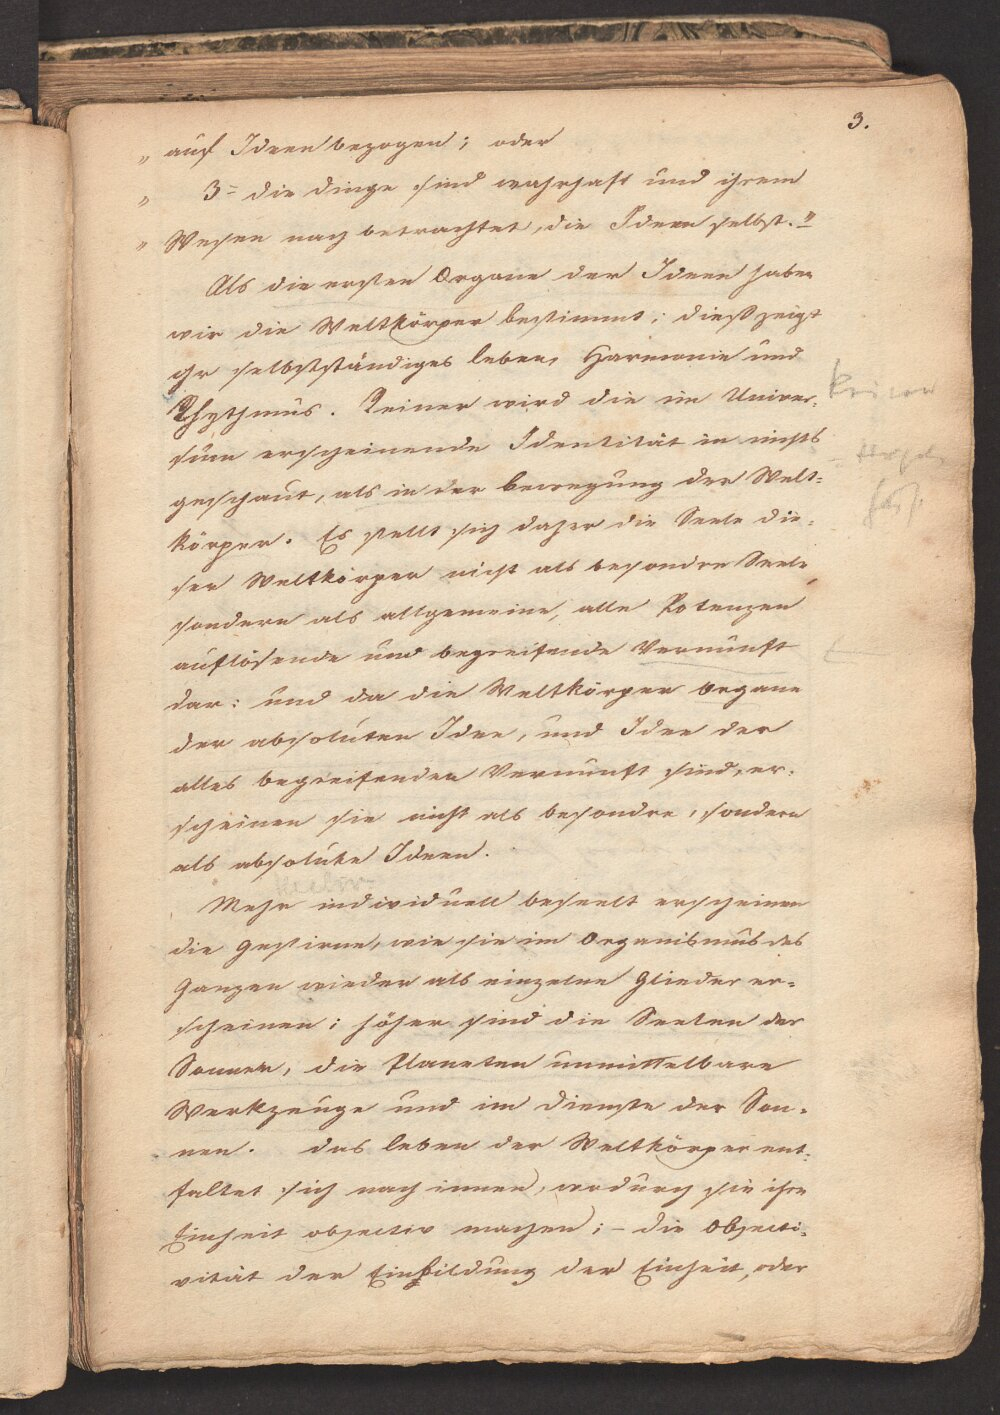 3.
„ auf Ideen bezogen; oder
„ 3= die Dinge sind wahrhaft und ihrem
„ Wesen nach betrachtet, die Ideen selbst."
Als die ersten Organe der Ideen haben
wir die Weltkörper bestimmt; dieß zeigt
ihr selbstständiges Leben, Harmonie und
Rhythmus. Reiner wird die im Univer-
sum erscheinende Identität in nichts
geschaut, als in der Bewegung der Welt=
körper. Es stellt sich daher die Seele die-
ser Weltkörper nicht als besondre Seele
sondern als allgemeine, alle Potenzen
auflösende und begreifende Vernunft
dar: und da die Weltkörper Organe
der absoluten Idee, und Idee der
alles begreifenden Vernunft sind, er-
scheinen sie nicht als besondre, sondern
als absolute Ideen.
Mehr individuell beseelt erscheinen
die Gestirne, wie sie im Organismus des
Ganzen wieder als einzelne Glieder er=
scheinen; höher sind die Seelen der
Sonnen, die Planeten unmittelbare
Werkzeuge und im Dienste der Son-
nen. Das Leben der Weltkörper ent-
faltet sich nach innen, wodurch sie ihre
Einheit objectiv machen; – die Objecti-
vität der Einbildung der Einheit, oder